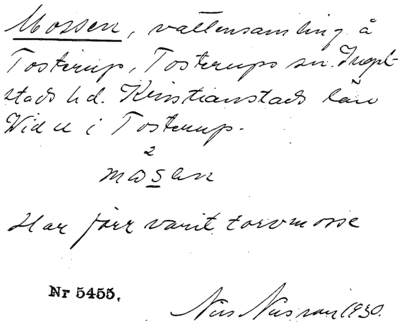 Mossen, vattensamling å
Tosterup, Tosterups sn. Ingel-
stads hd. Kristianstads län
Wid u i Tosterup.
2
mosen
Har förr varit torvmosse
Nr 5455.
Nils Nilsson 1930.